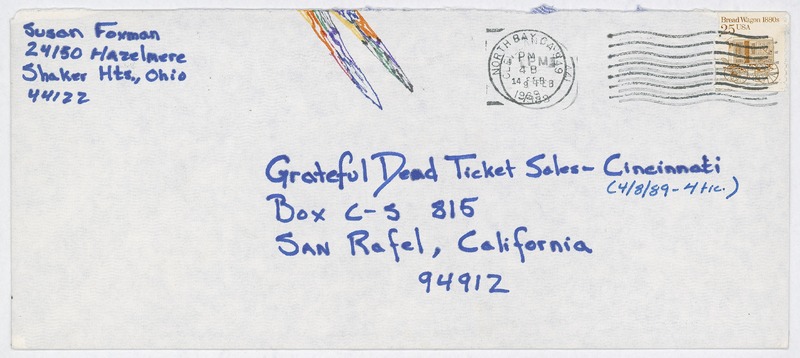 Susan Foxman
24150 Hazelmere
Shaker Hts., Ohio
44122
NORTH BAY, CA 949
PM
4B
14 FEB
1989
Bread Wagon 1880s
25 USA
Grateful Dead Ticket Sales - Cincinnati
(4/8/89 - 4 tic.)
Box C-S 815
San Rafel, California
94912